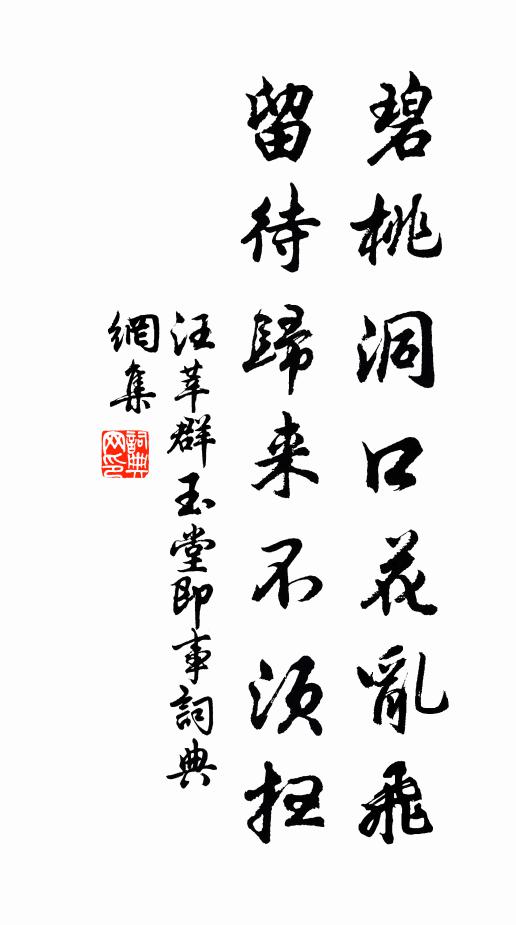 碧桃洞口花亂飛
留待歸来不須扫
汪莘群玉堂即事詞典
網集
詞典
网印